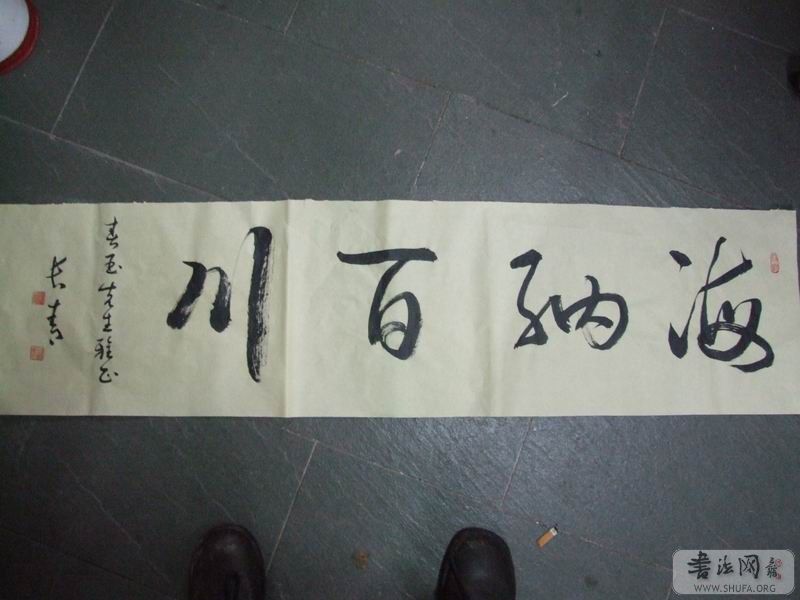 海纳百川
春玉先生雅正
长青
书法网
WWW.SHUFA.ORG